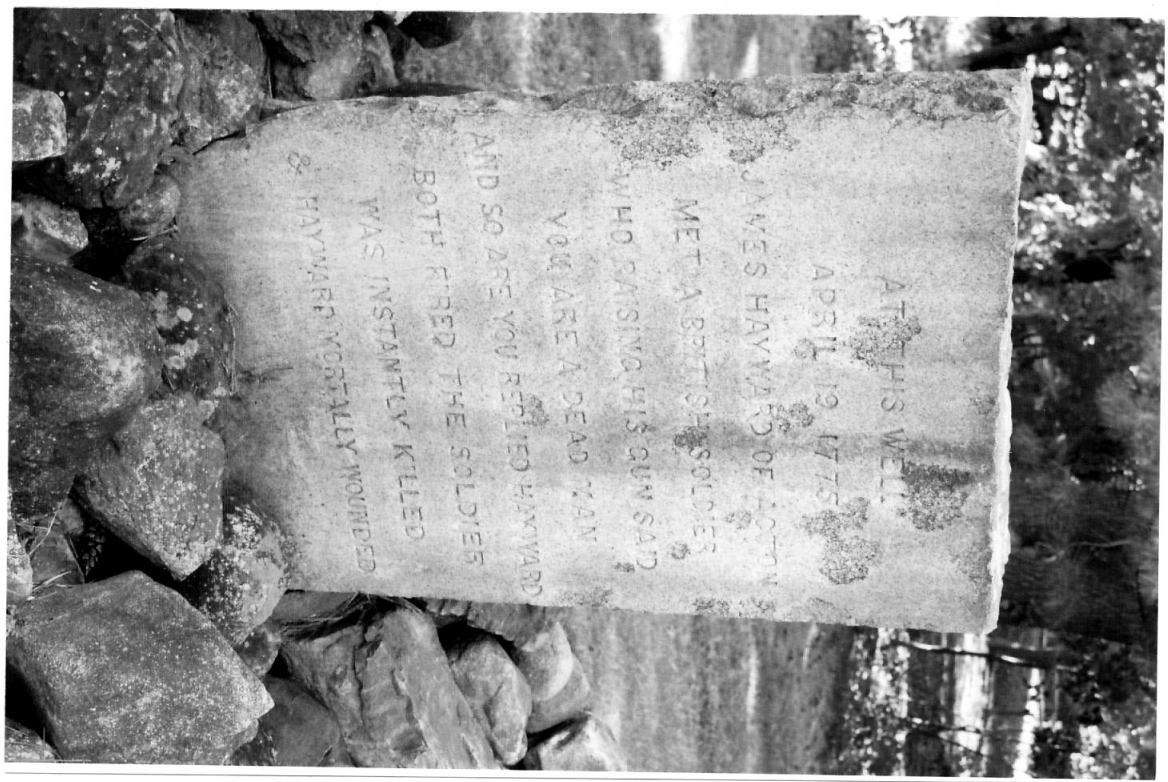 AT THIS WELL
APRIL 19 1775
JAMES HAYWARD OF ACTON
MET A BRITISH SOLDIER
WHO RAISING HIS GUN SAID
YOU ARE A DEAD MAN
AND SO ARE YOU REPLIED HAYWARD
BOTH FIRED THE SOLDIER
WAS INSTANTLY KILLED
& HAYWARD MORTALLY WOUNDED